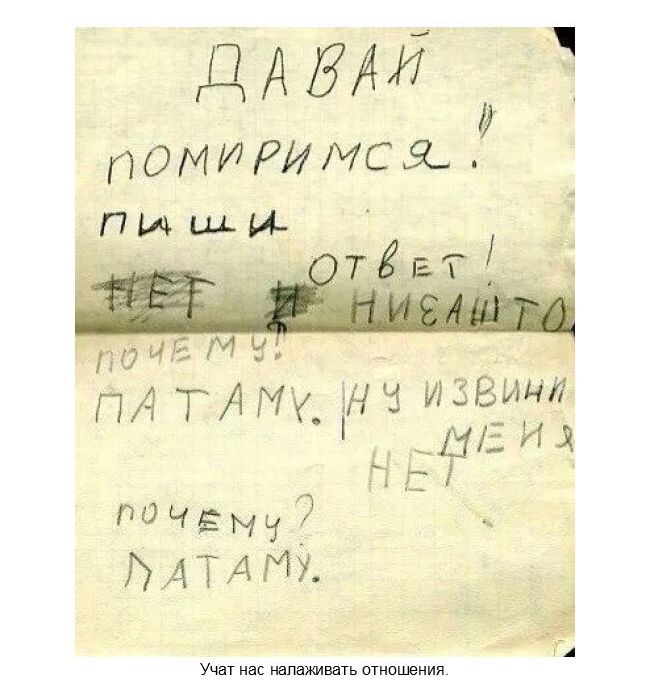 ДАВАЙ
ПОМИРИМСЯ!
ПИШИ
ОТВЕТ!
НЕТ И НИЗАШТО
ПОЧЕМУ!
ПАТАМУ. НУ ИЗВИНИ
МЕНЯ
НЕТ
ПОЧЕМУ?
ПАТАМУ.
Учат нас налаживать отношения.